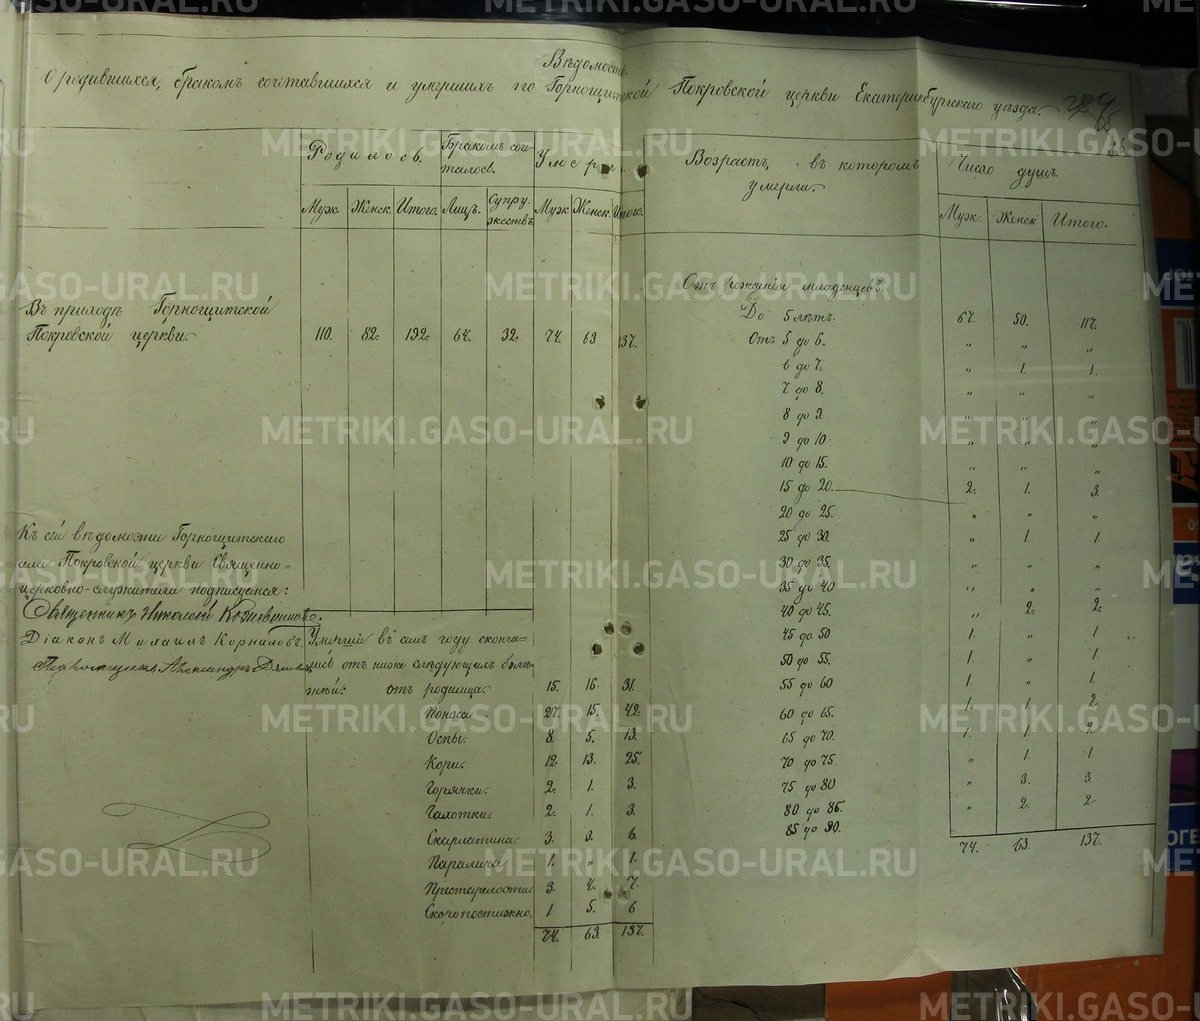 Вѣдомость
О родившихся, бракомъ сочетавшихся и умершихъ по Горнощитской Покровской церкви Екатеринбургскаго уѣзда.
Родилось.
Бракомъ соче-
талось.
Умерли.
Муж. Женск. Итого. Лицъ. Супру-
жествъ. Муж Женск. Итого.
Въ приходѣ Горнощитской
Покровской церкви. 110. 82. 192. 64. 32. 74. 63 137.
Къ сей вѣдомости Горнощитскаго
села Покровской церкви Священно-
церковно-служители подписуемся:
Священникъ Николай
Діаконъ Михаилъ Корниловъ.
Александръ
Умершіе въ семъ году сконча-
лись отъ ниже слѣдующихъ болѣз-
ней: отъ родимца. 15. 16. 31.
Поноса. 27. 15. 42.
Оспы. 8. 5. 13.
Кори. 12. 13. 25.
Горячки. 2. 1. 3.
Чахотки. 2. 1. 3.
Скарлатина. 3. 3. 6.
Паралича 1. „ 1.
Престарелости. 3. 4. 7.
Скоропостижно. 1. 5. 6
74. 63. 137.
Возрастъ, въ которомъ
умерли.
Число душъ.
Муж. Женск Итого.
Отъ рожденія младенцевъ.
До 5 лѣтъ. 67. 50. 117.
Отъ 5 до 6. „ „ „
6 до 7. „ 1. 1.
7 до 8. „ „ „
8 до 9. „ „ „
9 до 10 „ „ „
10 до 15. „ „ „
15 до 20. 2. 1. 3.
20 до 25. „ „ „
25 до 30. „ 1 1.
30 до 35. „ „ „
35 до 40 „ „ „
40 до 45. „ 2. 2.
45 до 50 1. „ 1.
50 до 55. 1. „ 1.
55 до 60 1. „ 1.
60 до 65. 1. 1. 2
65 до 70. 1. 1. 2
70 до 75. „ 1. 1.
75 до 80 „ 3. 3.
80 до 85. „ 2. 2
85 до 90.
74. 63. 137.
METRIKI.GASO-URAL.RU